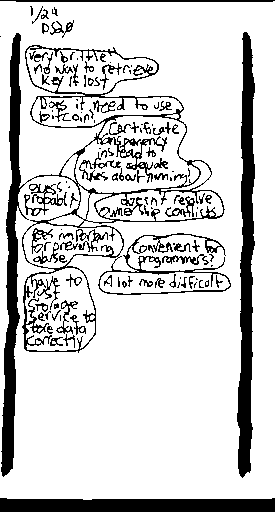 1/24
very brittle
no way to retrieve
key if lost
Does it need to use
bitcoin?
Certificate
transparency
instead to
enforce adequate
rules about naming?
guess:
probably
not
doesn't resolve
ownership conflicts
fees important
for preventing
abuse
Convenient for
programmers?
A lot more difficult
have to
trust
storage
service to
store data
correctly